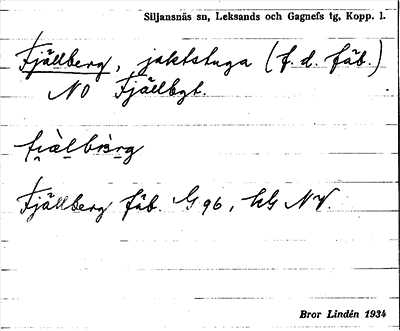 Siljansnäs sn, Leksands och Gagnefs tg, Kopp. l.
Fjällberg, jaktstuga (f. d. fäb.)
NO Fjällbgt.
Fjällberg fäb. G 96, hG NV.
Bror Lindén 1934